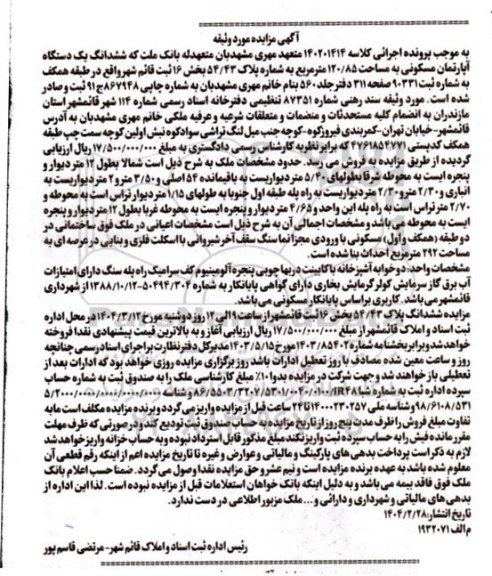 آگهی مزایده مورد وثیقه
به موجب پرونده اجرائی کلاسه ۱۴۰۲۰۱۴۱۴ متعهد مهری مشهدبان متعهدله بانک ملت که ششدانگ یک دستگاه
آپارتمان مسکونی به مساحت ۱۲۰/۸۵ مترمربع به شماره پلاک ۵۴/۴۳ بخش ۱۶ ثبت قائم شهر واقع در طبقه همکف
به شماره ثبت ۹۰۳۳۱ صفحه ۳۱۱ دفتر جلد ۵۶۰ بنام خانم مهری مشهدبان به شماره چاپی ۸۶۷۹۴۸ ج ۹۱ ثبت و صادر
شده است. مورد وثیقه سند رهنی شماره ۸۷۳۵۱ تنظیمی دفترخانه اسناد رسمی شماره ۱۱۴ شهر قائمشهر استان
مازندران به انضمام کلیه مستحدثات و منضمات و متعلقات شرعیه و عرفیه ملکی خانم مهری مشهدبان به آدرس
قائمشهر- خیابان تهران-کمربندی فیروزکوه-کوچه جنب میل لنگ تراشی سوادکوه نبش اولین کوچه سمت چپ طبقه
همکف کدپستی ۴۷۶۱۸۵۴۷۷۱ که برابر نظریه کارشناس رسمی دادگستری به مبلغ ۱۷/۵۰۰/۰۰۰/۰۰۰ ریال ارزیابی
گردیده از طریق مزایده به فروش می رسد. حدود مشخصات ملک به شرح ذیل است شمالا بطول ۱۲ متر دیوار و
پنجره ایست به محوطه شرقا بطولهای ۵/۴۰ متر دیواریست به باقیمانده ۵۴ اصلی و ۳/۵۰ متر و ۲ متر دیواریست به
انباری و ۲/۳۰ متر و ۲/۳۰ متر دیواریست به راه پله طبقه اول جنوبا به طولهای ۱/۱۵ متر دیوار تراس است به محوطه و
۲/۷۰ متر تراس است به راه پله این واحد و ۴/۶۵ متر دیوار و پنجره ایست به محوطه غربا بطول ۱۲ متر دیوار و پنجره
ایست به محوطه می باشد و مشخصات اجمالی آن به شرح ذیل است مشخصات اعیانی در ملک فوق ساختمانی در
دو طبقه (همکف و اول) مسکونی با ورودی مجزا نما سنگ سقف آخر شیروانی با اسکلت فلزی و بنایی در عرصه ای به
مساحت ۲۹۲ مترمربع احداث بنا شده است.
مشخصات واحد: دو خوابه آشپزخانه با کابینت دربها چوبی پنجره آلومینیوم کف سرامیک راه پله سنگ دارای امتیازات
آب برق گاز سرمایش کولر گرمایش بخاری دارای گواهی پایانکار به شماره ۵۰۴۹۴/۳۰۴-۱۳۸۸/۱۰/۱۲ از شهرداری
قائمشهر می باشد. کاربری براساس پایانکار مسکونی می باشد.
مزایده ششدانگ پلاک ۵۴/۴۳ بخش ۱۶ ثبت قائمشهر از ساعت ۹ الی ۱۲ روز دوشنبه مورخ ۱۴۰۴/۳/۱۲ در محل اداره
ثبت اسناد و املاک قائمشهر از مبلغ ۱۷/۵۰۰/۰۰۰/۰۰۰ ریال ارزیابی آغاز و به بالاترین قیمت پیشنهادی نقدا فروخته
خواهد شد و برابر بخشنامه شماره ۱۴۰۳/۸۵۴۰۲ مورخ ۱۴۰۳/۵/۱۵ مدیرکل دفتر نظارت بر اجرای اسناد رسمی چنانچه
روز و ساعت معین شده مصادف با روز تعطیل ادارات باشد روز برگزاری مزایده روزی خواهد بود که ادارات بعد از
تعطیلی باز خواهند شد و جهت شرکت در مزایده بدوا ۱۰٪ مبلغ کارشناسی ملک را به صندوق ثبت به شماره حساب
سپرده اداره ثبت به شماره شبا
و شناسه ملی ۱۴۰۰۰۲۳۰۲۵۷ تا ۲۴ ساعت قبل از مزایده واریز می گردد و برنده مزایده مکلف است مابه
تفاوت مبلغ فروش را ظرف مدت پنج روز از تاریخ مزایده به حساب صندوق ثبت تودیع کند و در صورتی که ظرف مهلت
مقرر مانده فیش را به حساب سپرده ثبت واریز نکند مبلغ مذکور قابل استرداد نبوده و به حساب خزانه واریز خواهد شد
لازم به ذکر است پرداخت بدهی های پارکینگ و مالیاتی و عوارض و غیره تا تاریخ مزایده اعم از اینکه رقم قطعی آن
معلوم شده باشد به عهده برنده مزایده است و نیم عشر و حق مزایده نقدا وصول می گردد. ضمنا حسب اعلام بانک
ملک فوق فاقد بیمه می باشد و به دلیل اینکه بانک خواهان استعلامات قبل از مزایده نبوده است. لذا این اداره از
بدهی های مالیاتی و شهرداری و دارائی و... ملک مزبور اطلاعی در دست ندارد.
تاریخ انتشار: ۱۴۰۴/۲/۲۸
م الف ۱۹۳۲۰۷۱
رئیس اداره ثبت اسناد و املاک قائم شهر- مرتضی قاسم پور